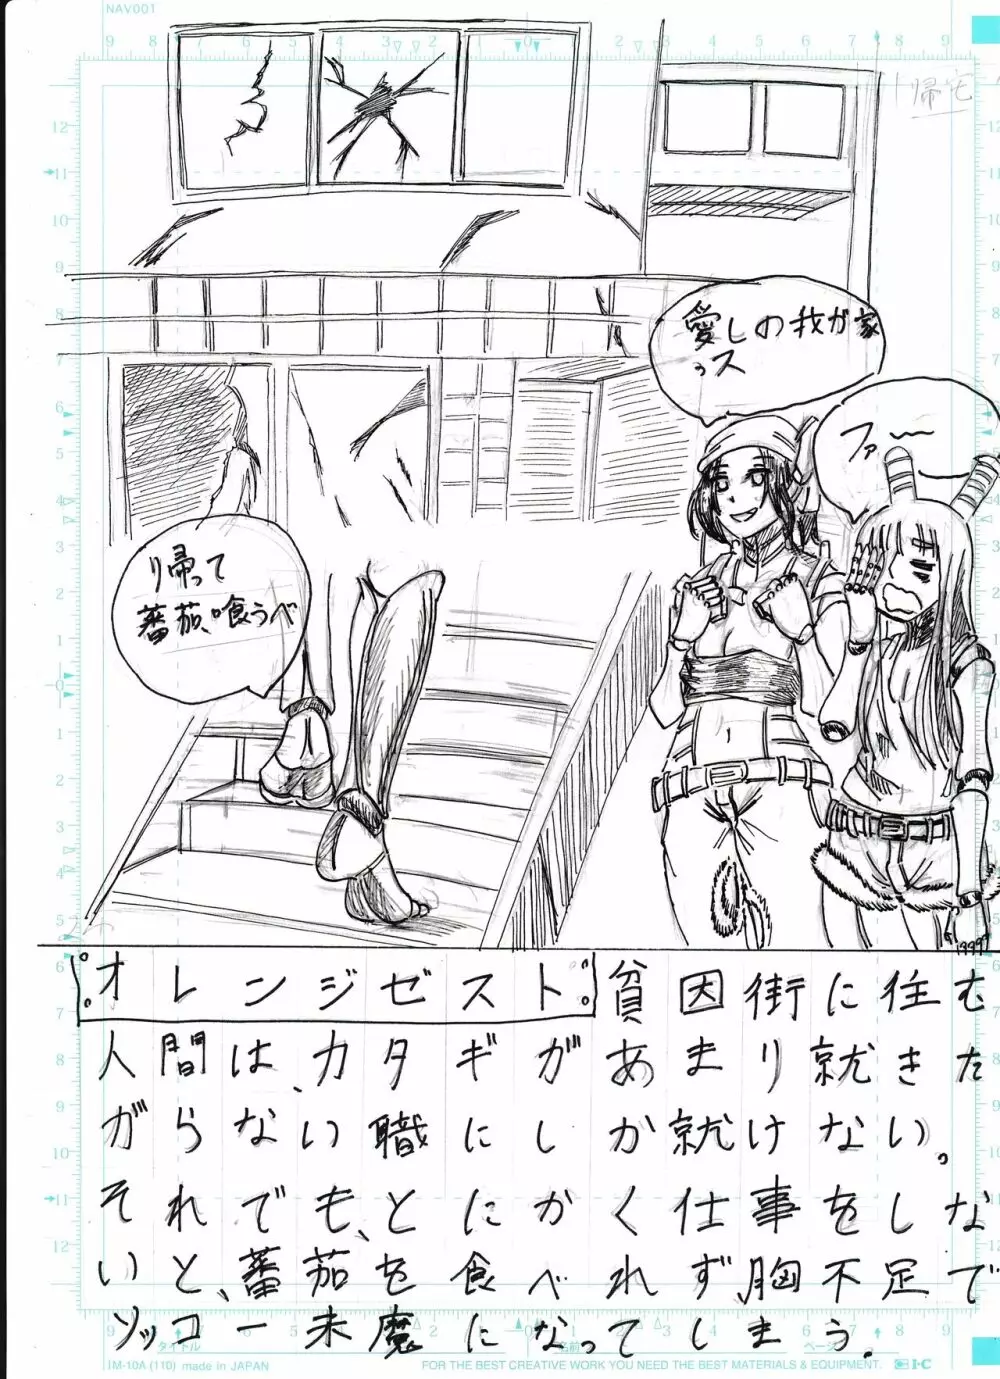 NAV001
帰宅
愛しの我が家
っス
ファ〜
り帰って
蕃茄、喰うべ
オレンジゼスト 貧因街に住む
人間は、カタギがあまり就きた
がらない職にしか就けない。
それでも、とにかく仕事をしな
いと、蕃茄を食べれず、胸不足で
ソッコー未魔になってしまう。
タイトル 名前 ページ
IM-10A (110) made in JAPAN FOR THE BEST CREATIVE WORK YOU NEED THE BEST MATERIALS & EQUIPMENT. I·C